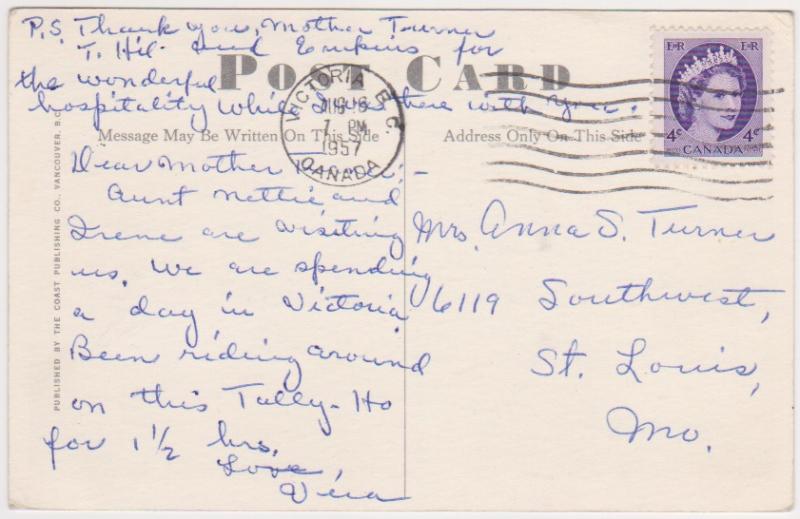 P.S. Thank you, Mother Turner
T. Hil. and Empkins for
the wonderful
hospitality while I was there with you.
POST CARD
VICTORIA B.C.
7 PM
1957
CANADA
E R E R
4c 4c
CANADA
Message May Be Written On This Side
Address Only On This Side
Dear Mother
Aunt Nettie and
Irene are visiting
us. We are spending
a day in Victoria
Been riding around
on this Tally-Ho
for 1 1/2 hrs.
Love,
Vera
Mrs. Anna S. Turner
6119 Southwest,
St. Louis,
Mo.
PUBLISHED BY THE COAST PUBLISHING CO., VANCOUVER, B.C.